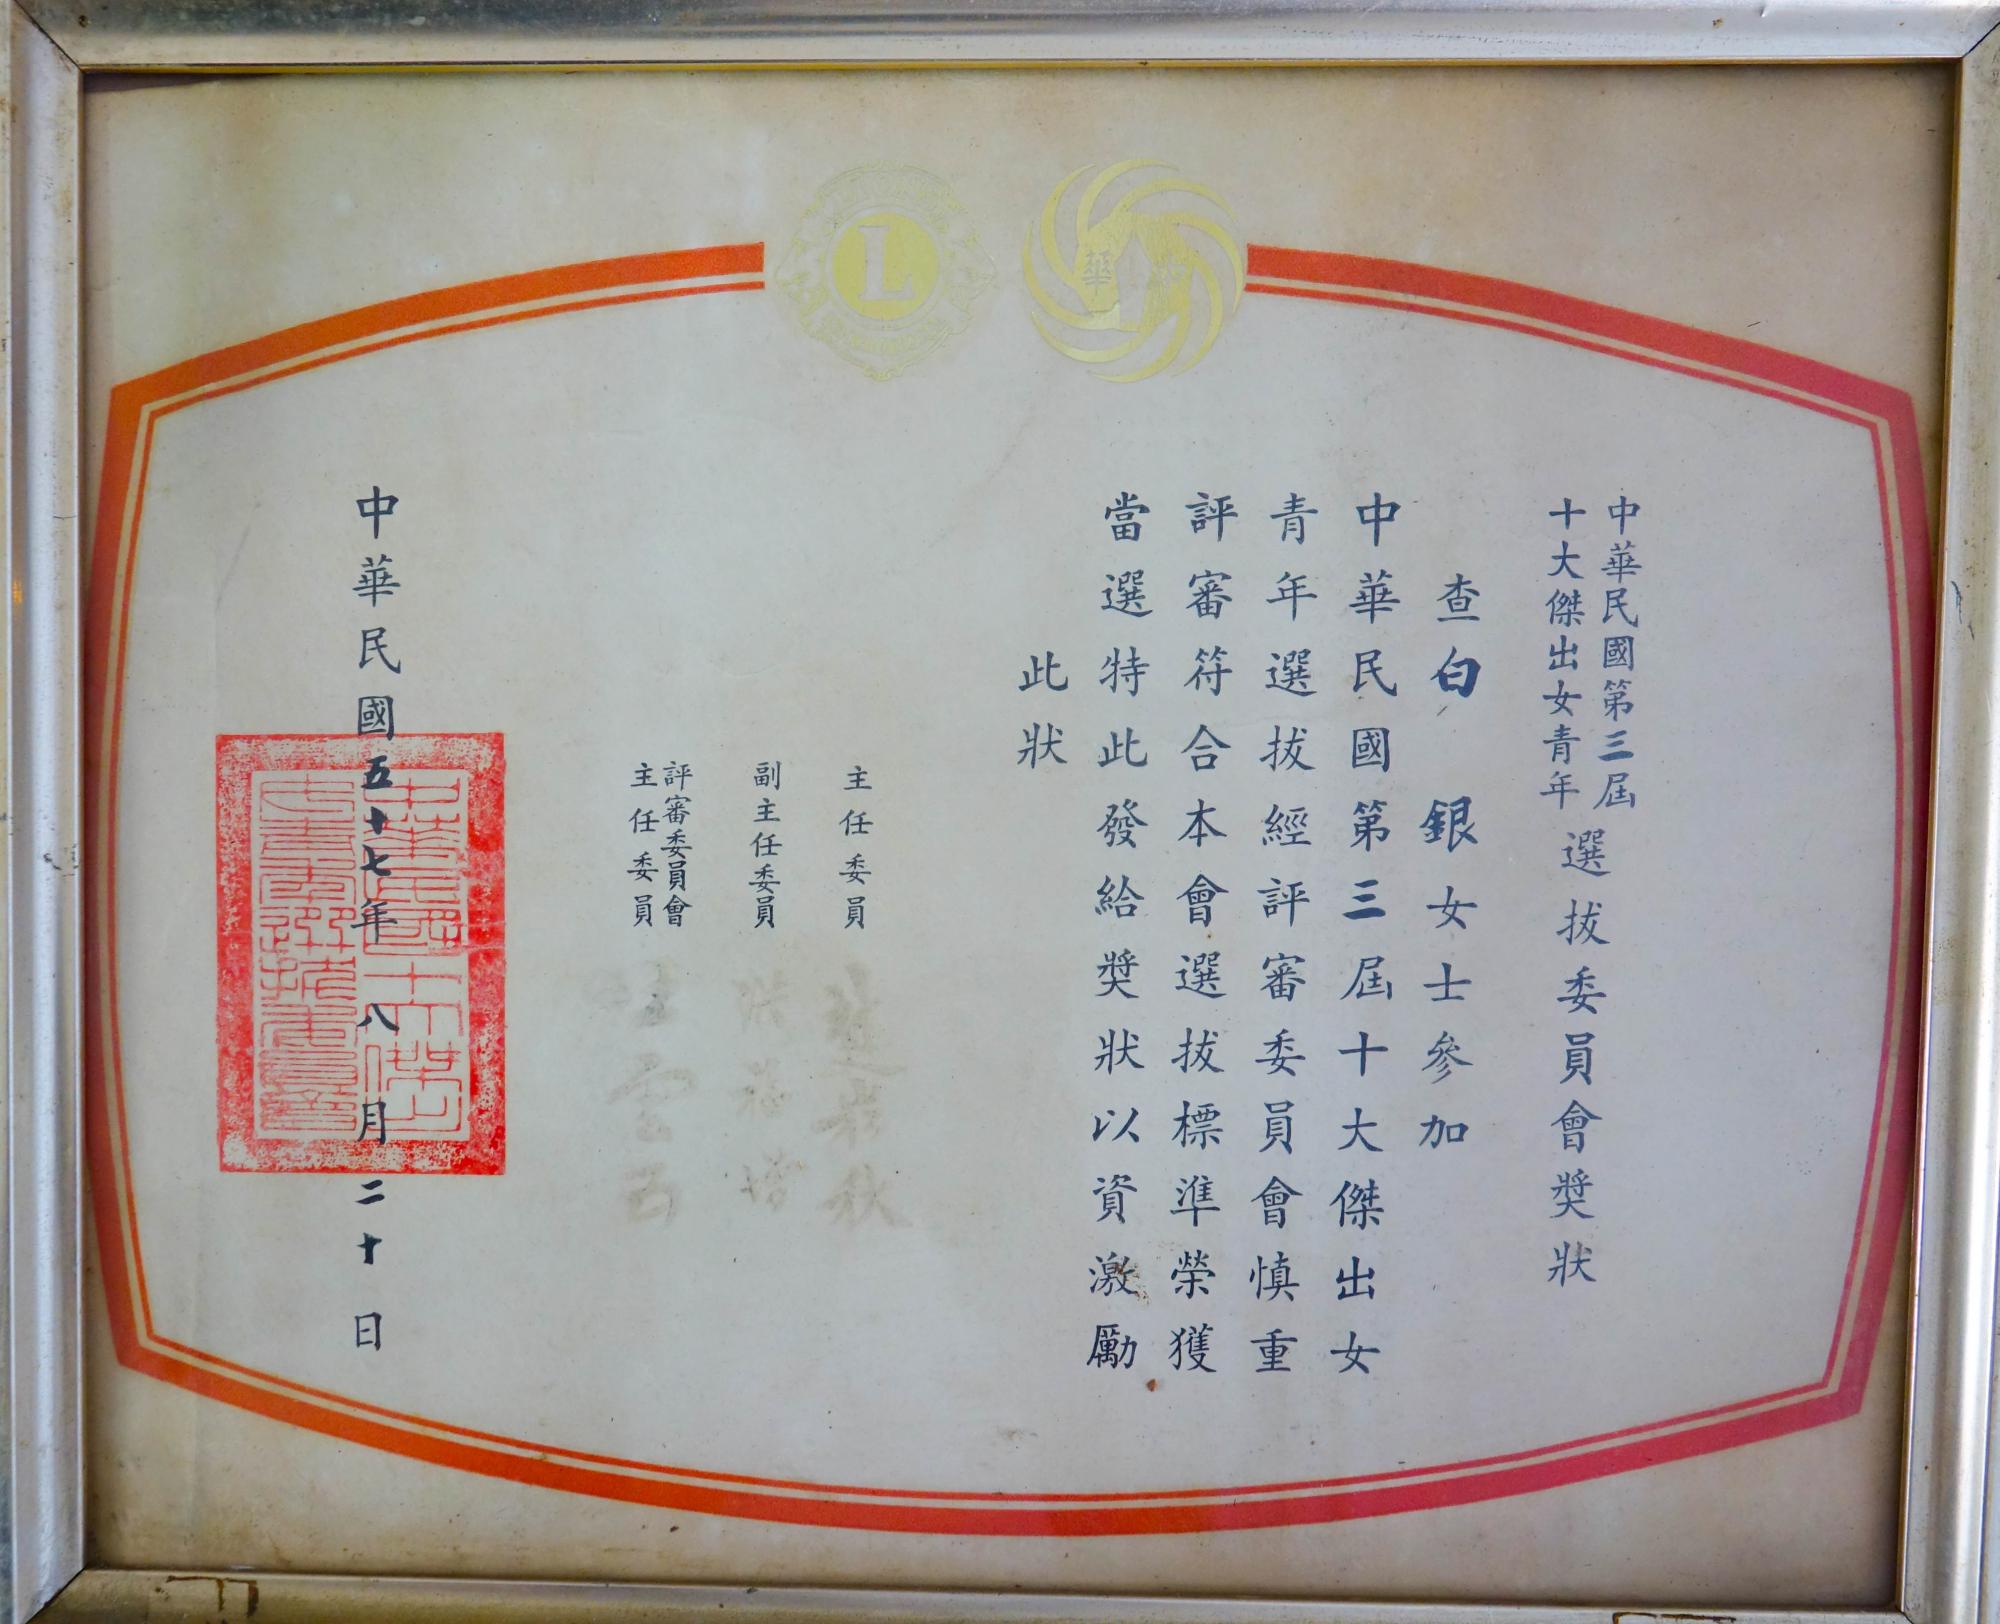 中華民國第三屆
十大傑出女青年
選拔委員會獎狀
查白 銀女士參加
中華民國第三屆十大傑出女
青年選拔經評審委員會慎重
評審符合本會選拔標準榮獲
當選特此發給獎狀以資激勵
此狀
主任委員
副主任委員
評審委員會
主任委員
中華民國五十七年八月二十日
L
華